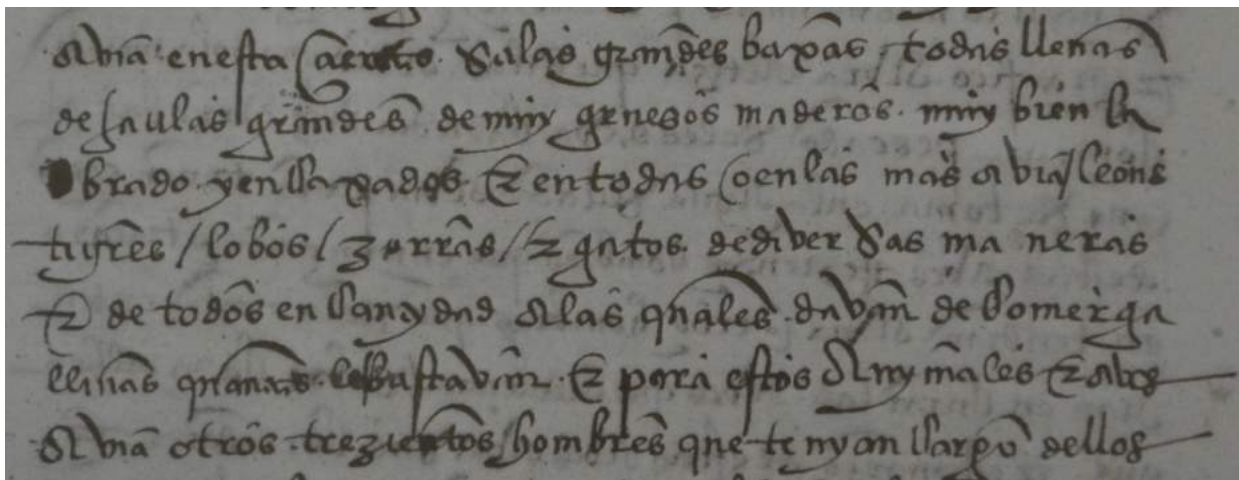 avia en esta casa ciertas salas grandes baxas todas llenas
de jaulas grandes de muy gruesos maderos muy bien la
brados y encaxados e en todas o en las mas avia leones
tigres / lobos / zorras / e gatos de diversas maneras
e de todos en cantydad a las quales davan de comer ga
llinas quantas les bastavan e para estos anymales e aves
avia otros trezientos hombres que tenyan cargo dellos